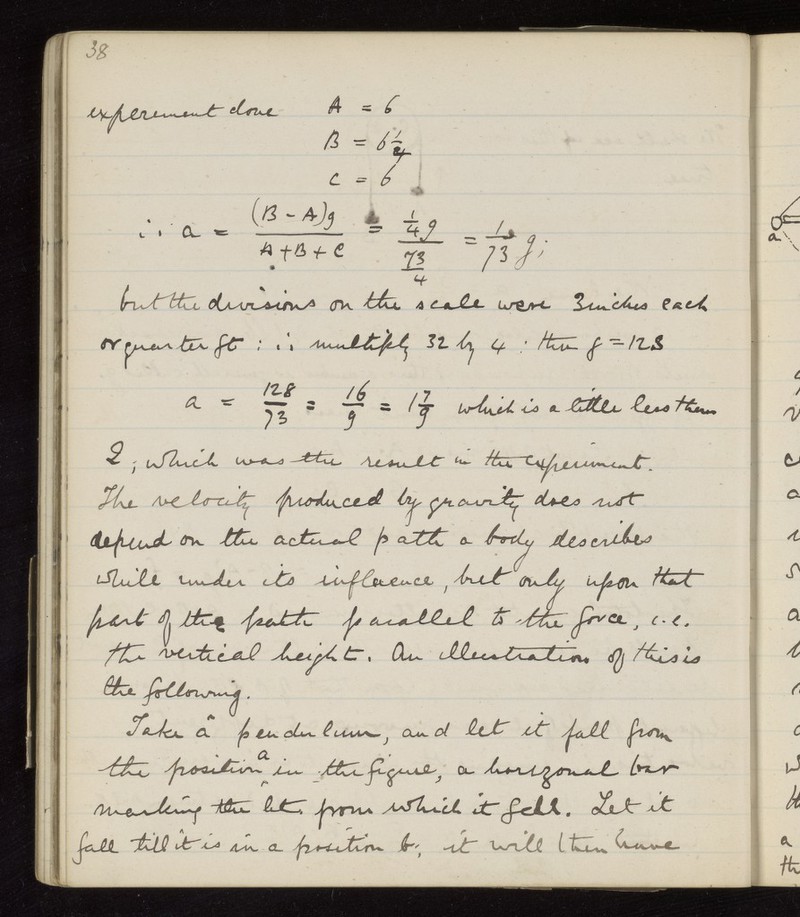 38
experement done A = 6
B = 6 1/4
C = 6
∴ a = (B - A)g / A + B + C = 1/4 g / 73/4 = 1/73 g;
but the divisions on the scale were 3 inches each
or quarter ft : ∴ multiply 32 by 4 : then g = 128
a = 128/73 = 16/9 = 1 7/9 which is a little less than
2; which was the result in the experiment.
The velocity produced by gravity does not
depend on the actual path a body describes
while under its influence, but only upon that
part of the path parallel to the force, i.e.
the vertical height. An illustration of this is
the following.
Take a pendulum, and let it fall from
the position a in the figure, a horizonal bar
marking the ht. from which it fell. Let it
fall till it is in a position b; it will then have
a